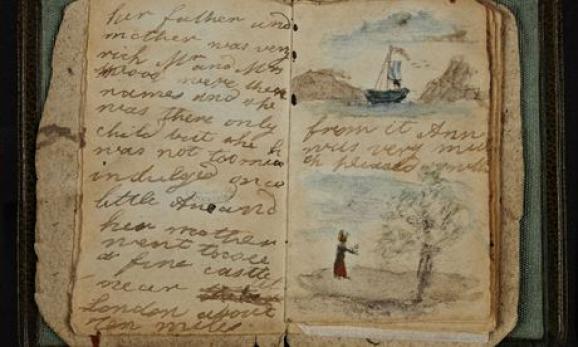 her father and
mother was very
rich Mr and Mrs
Wood were there
names and she
was there only
child but she h
was not too mu
indulged once
little Ane and
her mother
went to see
a fine castle
near
London about
ten miles
from it Ann
was very mu
ch pleased with